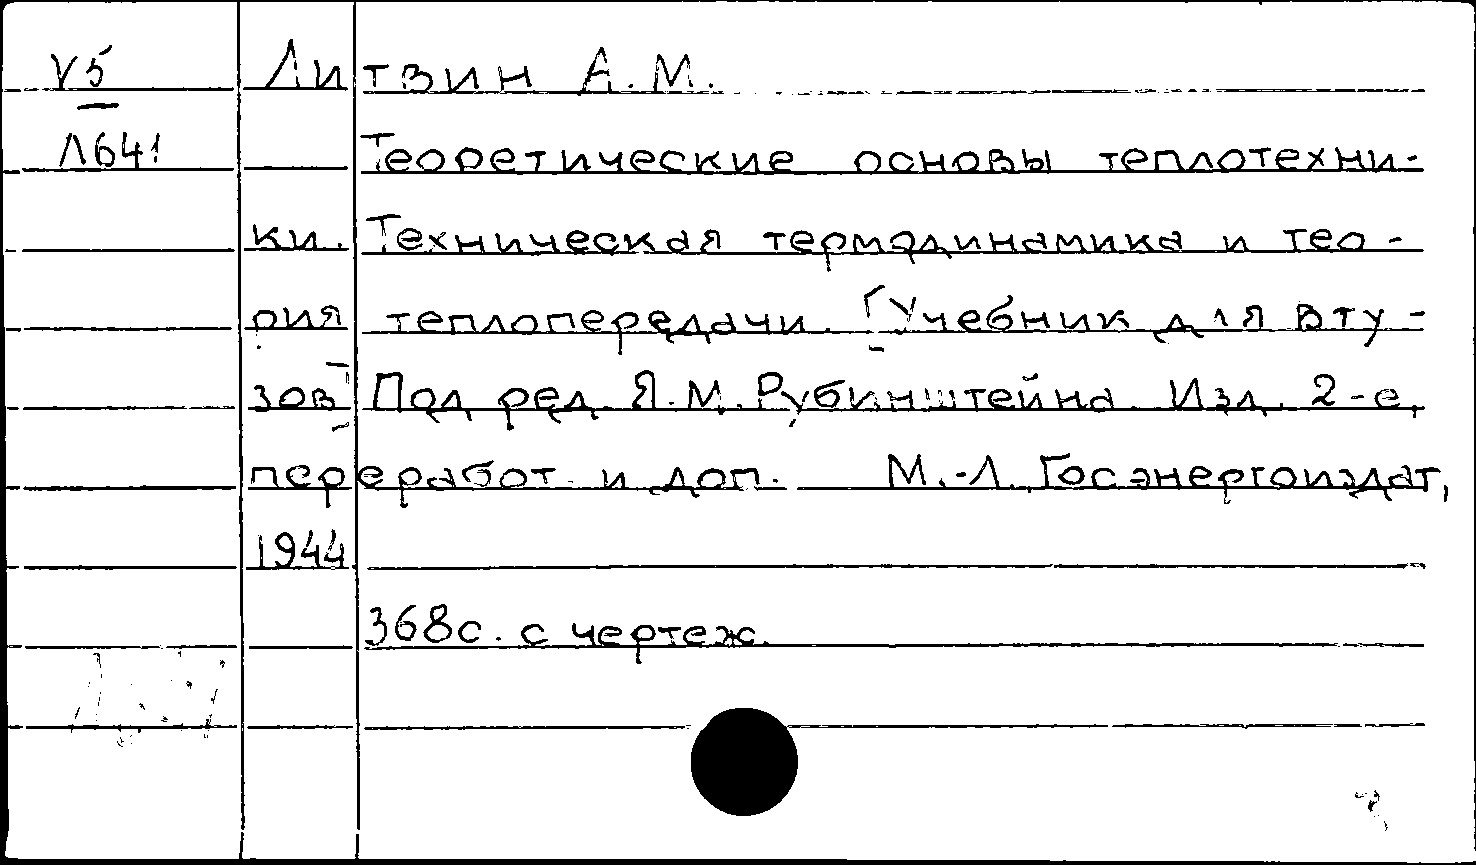 V5 Литвин А.М.
Л641 Теоретические основы теплотехни-
ки. Техническая термодинамика и тео-
рия теплопередачи. [Учебник для вту-
зов] Под ред. Я.М. Рубинштейна. Изд. 2-е,
переработ. и доп. М.-Л. Госэнергоиздат,
1944
368с. с чертеж.